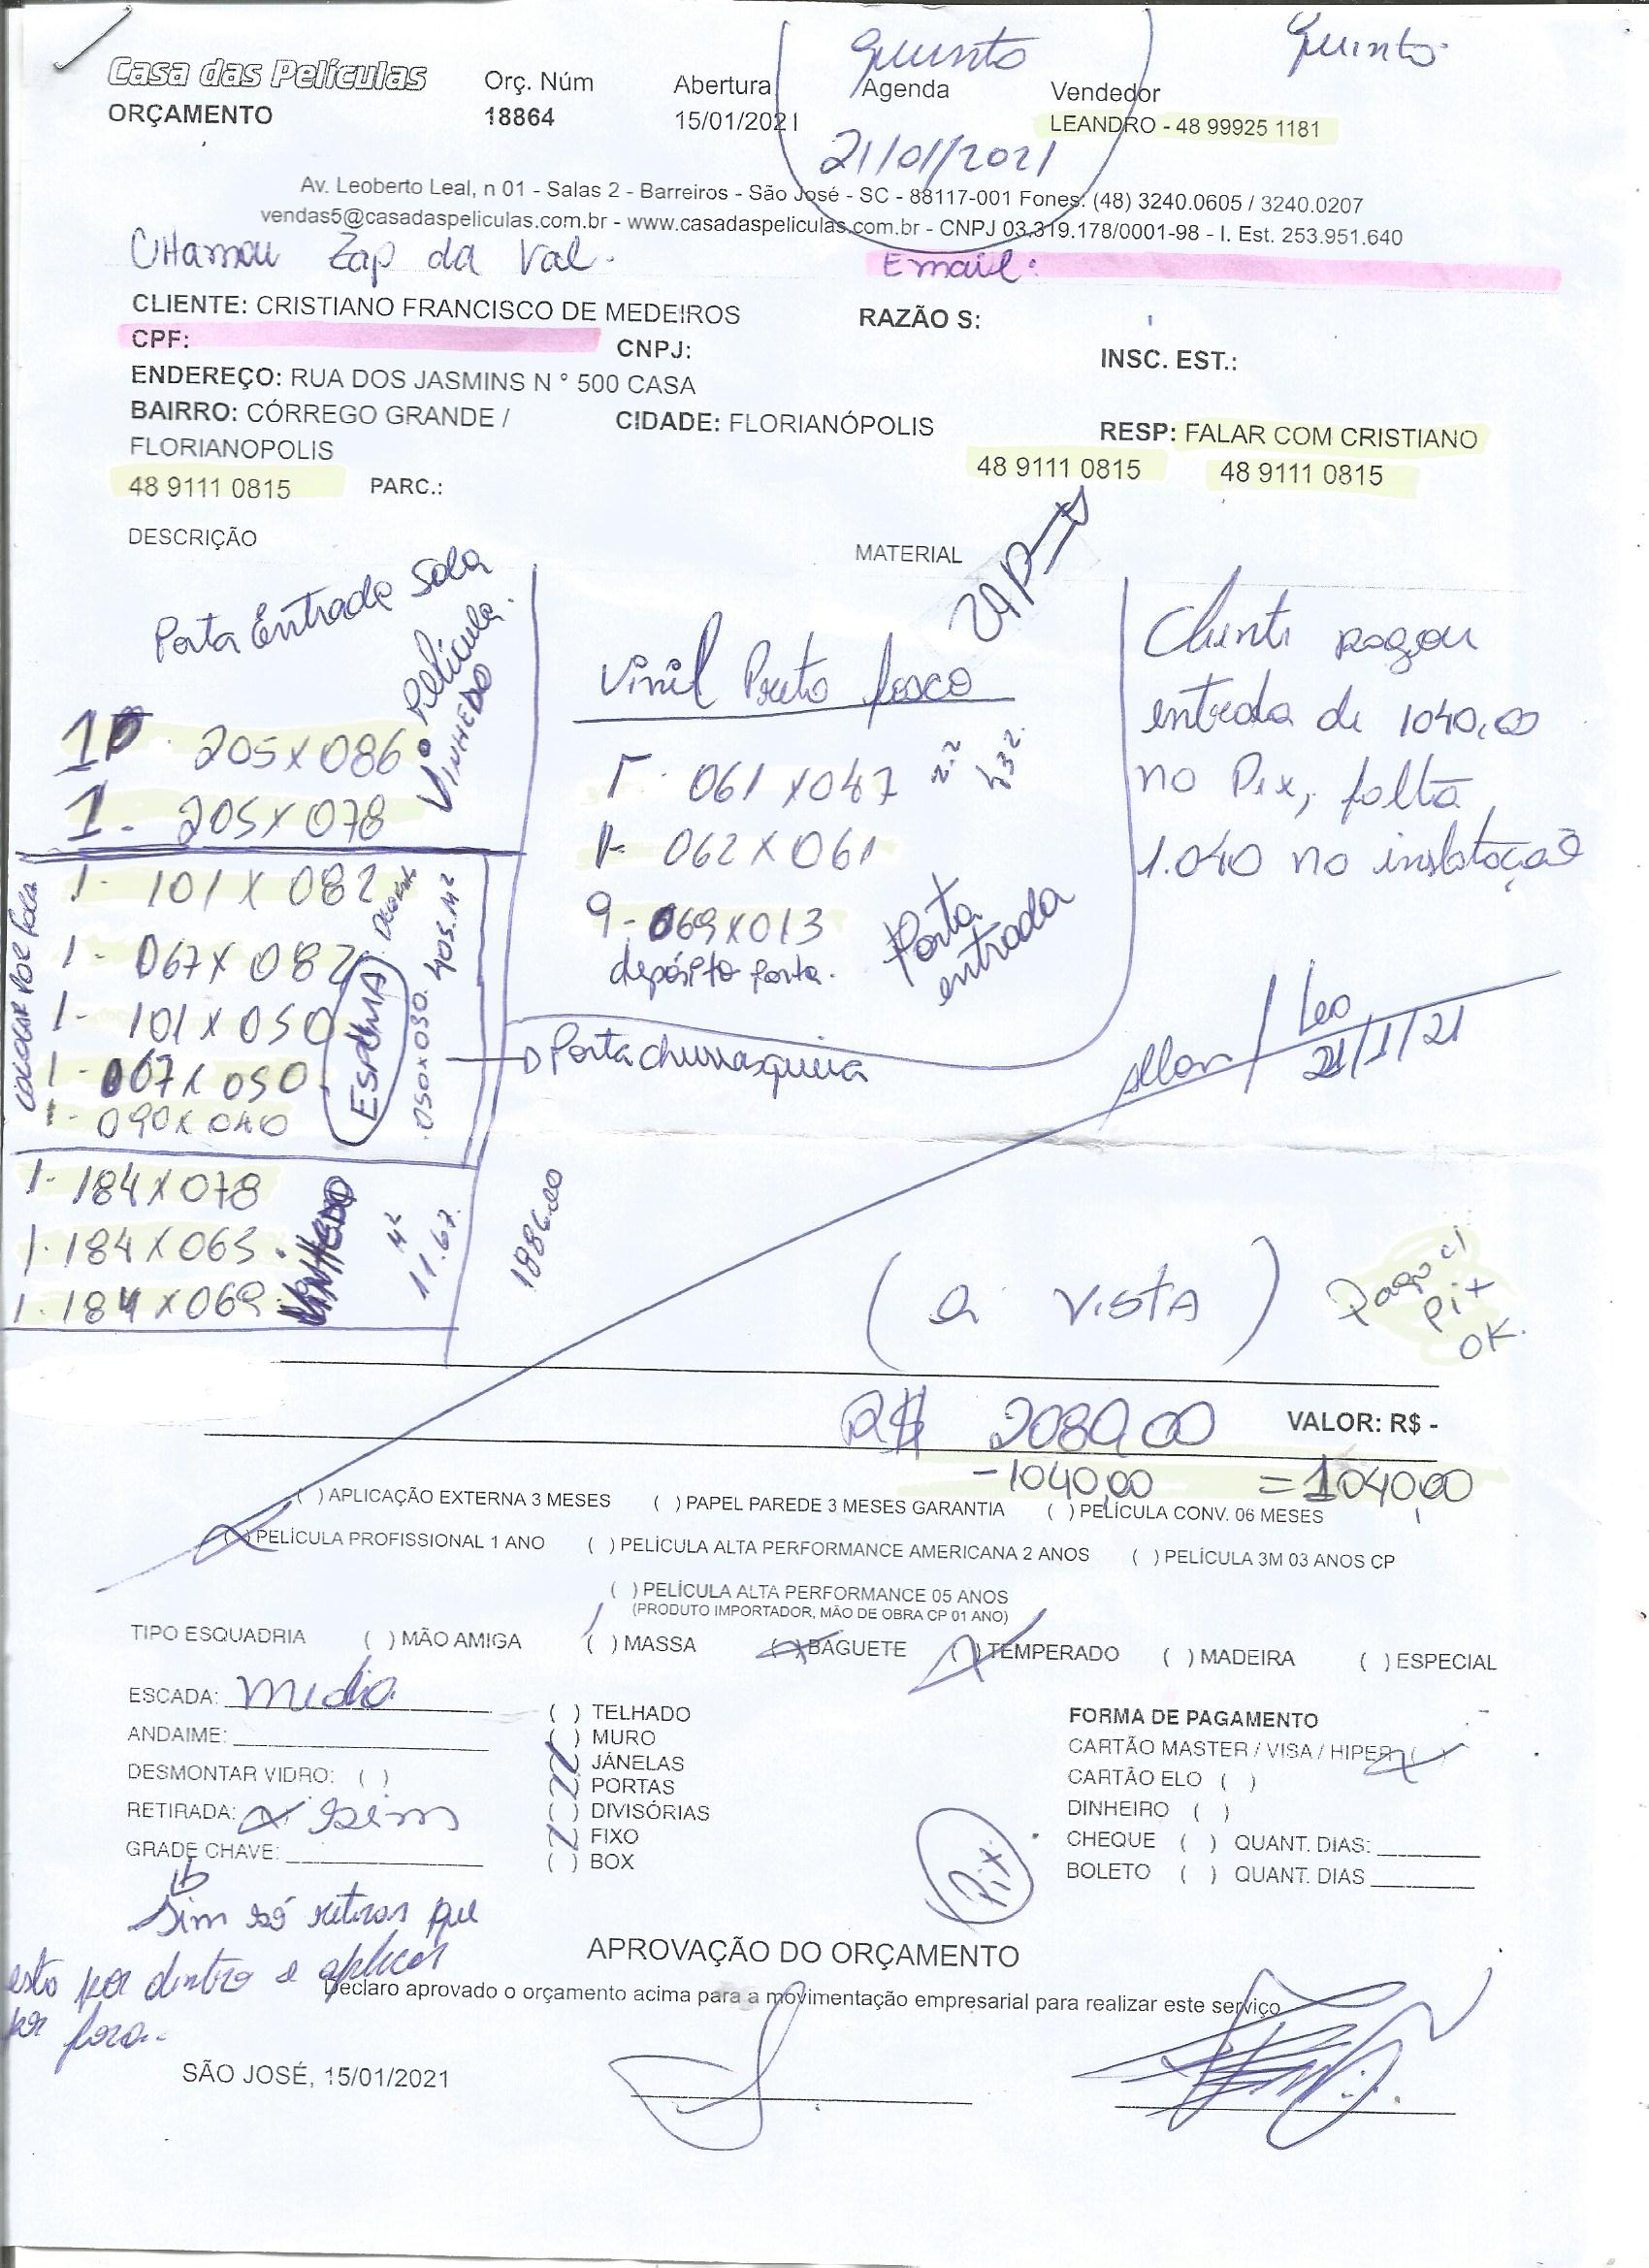 Quinta
Quinta
Casa das Películas
ORÇAMENTO
Orç. Núm
18864
Abertura
15/01/2021
Agenda
21/01/2021
Vendedor
LEANDRO - 48 99925 1181
Av. Leoberto Leal, n 01 - Salas 2 - Barreiros - São José - SC - 88117-001 Fones: (48) 3240.0605 / 3240.0207
vendas5@casadaspeliculas.com.br - www.casadaspeliculas.com.br - CNPJ 03.319.178/0001-98 - I. Est. 253.951.640
CHamou Zap da Val.
Email:
CLIENTE: CRISTIANO FRANCISCO DE MEDEIROS
RAZÃO S:
CPF:
CNPJ:
INSC. EST.:
ENDEREÇO: RUA DOS JASMINS N ° 500 CASA
BAIRRO: CÓRREGO GRANDE /
FLORIANOPOLIS
CIDADE: FLORIANÓPOLIS
RESP: FALAR COM CRISTIANO
48 9111 0815
PARC.:
48 9111 0815
48 9111 0815
DESCRIÇÃO
MATERIAL
ZAP
Porta Entrada Sala
Película
VINHEDO
1 205 x 086
1. 205 x 078
COLOCAR POR fora
1- 101 x 082
1- 067 x 082
1- 101 x 050
1- 067 x 050
1- 090 x 040
ESPUMA
050 x 030.
405. M²
Porta churrasqueira
1- 184 x 078
1. 184 x 063
1. 184 x 069
VINHEDO
M²
11.67.
1986,00
Vinil Preto fosco
1- 061 x 047
1- 062 x 061
9- 069 x 013
depósito porta.
Porta
entrada
Cliente pagou
entrada de 1040,00
no Pix, falta
1.040 na instalação
Allan / Leo
21/1/21
(a VISTA)
Pago c/
Pix
OK.
R$ 2080,00
VALOR: R$ -
-1040,00 = 1040,00
( ) APLICAÇÃO EXTERNA 3 MESES ( ) PAPEL PAREDE 3 MESES GARANTIA ( ) PELÍCULA CONV. 06 MESES
(X) PELÍCULA PROFISSIONAL 1 ANO ( ) PELÍCULA ALTA PERFORMANCE AMERICANA 2 ANOS ( ) PELÍCULA 3M 03 ANOS CP
( ) PELÍCULA ALTA PERFORMANCE 05 ANOS
(PRODUTO IMPORTADOR, MÃO DE OBRA CP 01 ANO)
TIPO ESQUADRIA ( ) MÃO AMIGA ( ) MASSA (X) BAGUETE (X) TEMPERADO ( ) MADEIRA ( ) ESPECIAL
ESCADA: media
ANDAIME:
DESMONTAR VIDRO: ( )
RETIRADA: X Sim
GRADE CHAVE:
Sim só retirar que
esta por dentro e aplicar
por fora..
( ) TELHADO
( ) MURO
( ) JÁNELAS
( ) PORTAS
( ) DIVISÓRIAS
( ) FIXO
( ) BOX
Pix
FORMA DE PAGAMENTO
CARTÃO MASTER / VISA / HIPER (X)
CARTÃO ELO ( )
DINHEIRO ( )
CHEQUE ( ) QUANT. DIAS:
BOLETO ( ) QUANT. DIAS
APROVAÇÃO DO ORÇAMENTO
Declaro aprovado o orçamento acima para a movimentação empresarial para realizar este serviço
SÃO JOSÉ, 15/01/2021